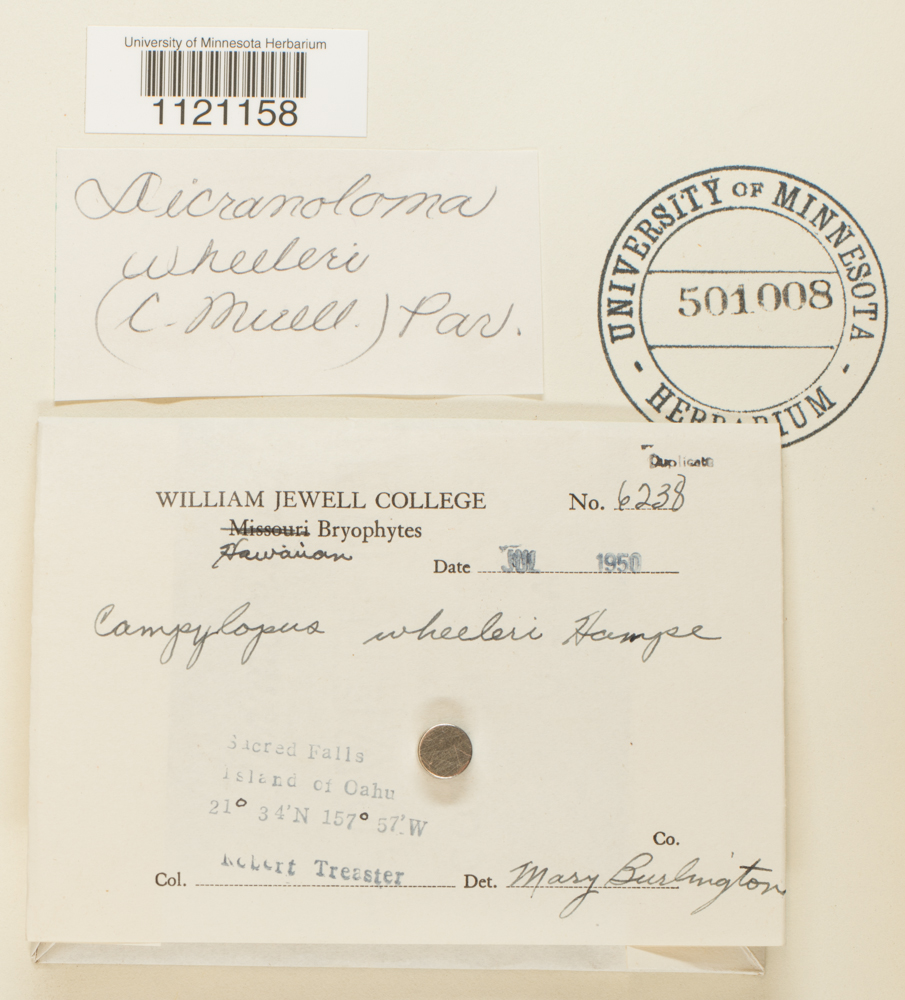 University of Minnesota Herbarium
1121158
Dicranoloma
wheeleri
(C. Muell.) Par.
UNIVERSITY OF MINNESOTA
501008
- HERBARIUM -
Duplicate
WILLIAM JEWELL COLLEGE
No. 6238
Missouri Bryophytes
Hawaiian
Date JUL 1950
Campylopus wheeleri Hampe
Sacred Falls
Island of Oahu
21° 34'N 157° 57'W
Co.
Col. Robert Treaster Det. Mary Burlington